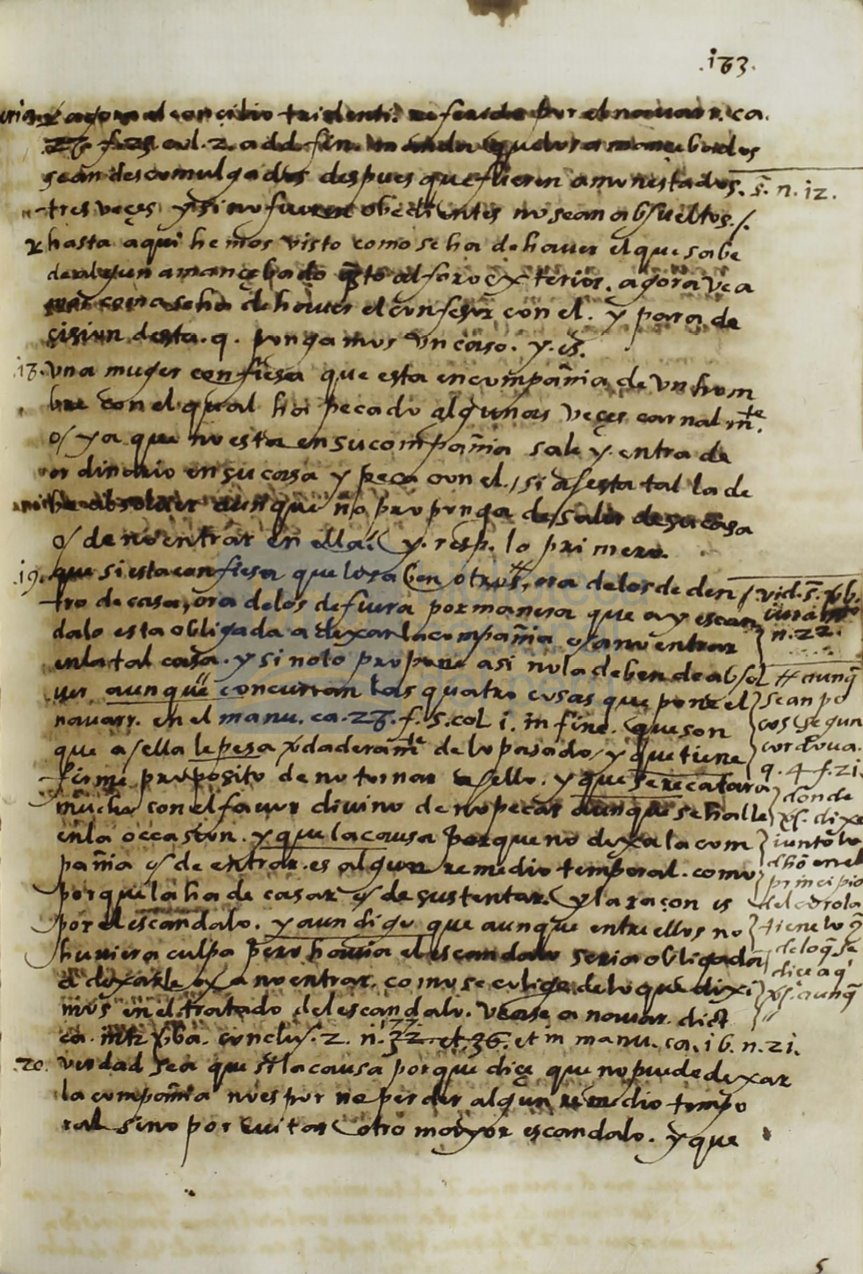 .183.
y agora el concilio tridenti. referido por el nauarr. ca.
26. f. col. 2. ad fin. manda que los amancebados
sean descomulgados despues que fueren amonestados
tres veçes y si no fueren obedientes no sean absueltos./.
s. n. 12.
hasta aqui hemos visto como se ha de hauer el que sabe
de algun amançebado qto al foro exterior. agora vea
mos como se ha de hauer el confesor con el. y para de
cision desta .q. pongamos vn caso. y. es.
.18. vna muger confiesa que esta en compañia de vn hom
bre con el qual ha pecado algunas veçes carnal mte.
o/ ya que no esta en su compañia sale y entra de
ordinario en su casa y peca con el, si a esta tal la de
be absoluer aunque no proponga de salir de su casa
o/ de no entrar en ella. y. resp. lo primero
.19. que si esta confiesa que lo sa ben otros, ora de los de den
tro de casa, ora de los de fuera por manera que ay escan
dalo esta obligada a dexar la compañia o/ a no entrar
en la tal casa. y si no lo propone asi no la deben de absol
uer aunque concurran las quatro cosas que pone el
nauarr. en el manu. ca. 26. f. 5. col 1. in fine. que son
que a ella le pesa vdaderamte de lo pasado, y que tiene
firme proposito de no tornar a ello. y que se recatara
mucho con el fauor diuino de no pecar aunque se halle
en la occasion. y que la causa porque no dexa la com
pañia o/ de entrar. es algun remedio temporal. como
porque la ha de casar o/ de sustentar. y la raçon es
por el escandalo. y aun digo que aunque entre ellos no
huuiera culpa pero hauia el escandalo seria obligada
a dexarle o/ a no entrar. como se colige de lo que dixi
mos en el tratado del escandalo. Vease a nauar. dict
ca. conclus. 2. n. 32 et 36. et in manu. ca. 16. n. 21.
.20. verdad sea que si la causa porque diçe que no puede dexar
la compañia no es por no perder algun remedio tempo
ral sino por euitar otro mayor escandalo. y que
vid. s.
n. 22.
aunq
sean po
cos segun
cordoua.
q. 4 f. 21.
donde
dixe
junto lo
dho en el
principio
tiene lo q
de lo q se
dice aq
aunq
5